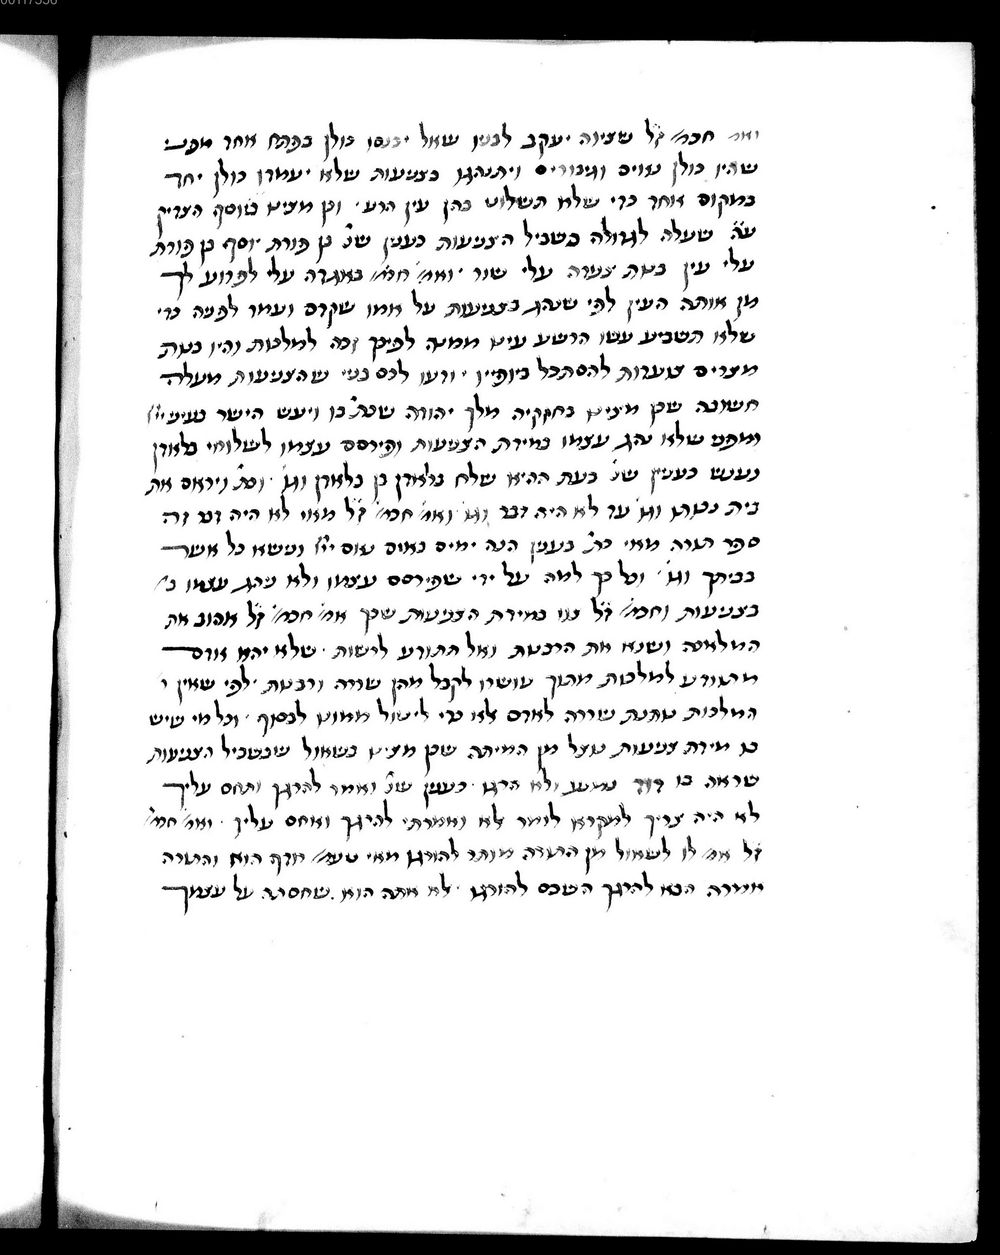 ואמ' חכמ' ז"ל שציוה יעקב לבניו שאל יכנסו כולן בפתח אחד מפני
שהיו כולן נאוים וגיבורים ויתנהגו בצניעות שלא יעמדו כולן יחד
במקום אחד כדי שלא תשלוט בהן עין הרע · וכן מצינו ביוסף הצדיק
ע"ה שעלה לגדולה בשביל הצניעות כענין שנ' בן פורת יוסף בן פורת
עלי עין בנות צעדה עלי שור · ואמ' חכמ' באגדה עלי לפרוע לך
מן אותה העין לפי שנהג בצניעות על אמו שקדם ועמד לפניה כדי
שלא תשביע עשו הרשע עינו ממנה לפיכך זכה למלכות והיו בנות
מצרים צוערות להסתכל ביופיין · ודעו לכם בניי שהצניעות מעלה
חשובה שכן מצינו בחזקיה מלך יהודה שכת' בו ויעש הישר בעיני ייי
ומפני שלא נהג עצמו במידת הצניעות ופירסם עצמו לשלוחי בלאדן
נענש כענין שנ' בעת ההיא שלח בראדן בן בלאדן וגו' · וכת' ויראם את
בית נכותו וגו' עד לא היה דבר וגו' ואמ' חכמ' ז"ל מאי לא היה דבר זה
ספר תורה מאי כת' בענין הנה ימים באים נאום ייי ונישא כל אשר
בביתך וגו' · וכל כך למה על ידי שפירסם עצמו ולא נהג עצמו
בצניעות וחכמ' ז"ל נהגו במידת הצניעות שכך אמ' חכמ' ז"ל אהוב את
המלאכה ושנא את הרבנות ואל תתודע לרשות · שלא יהא אדם
מתודע למלכות מתוך עושרו לקבל מהן שררה ורבנות · לפי שאין
המלכות נותנת שררה לאדם אלא כדי ליטול ממונו לבסוף · וכל מי שיש
בו מידת צניעות ניצל מן המיתה שכן מצינו בשאול שבשביל הצניעות
שראה בו דוד נמנע ולא הרגו · כענין שנ' ואמר להרגך ותחס עליך
לא היה צריך למקרא לומר אלא ואמרתי להרגך ואחס עליך · ואמ' חכמ'
ז"ל אמ' לו לשאול מן התורה מותר להורגו מאי טעמ' רודף הוא והתורה
אמרה הבא להרגך השכם להורגו · לא אתה הוא שחסתה על עצמך